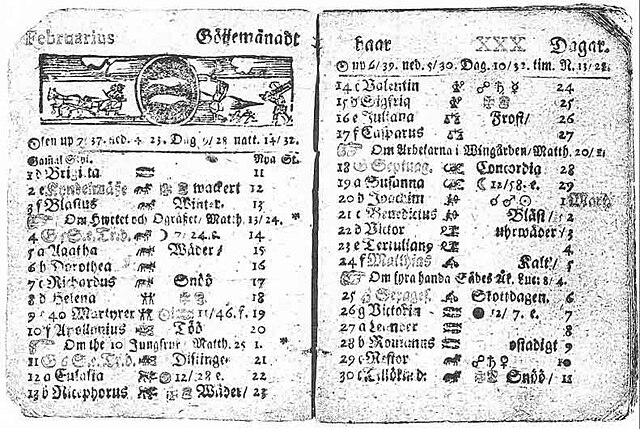 Februarius Göijemånadt
Solen up 7/37. ned. 4 23. Dag 9/28 natt. 14/32.
Gamal Styl. Nya St.
1 d Brigita 11
2 e Kyndelmässe wackert 12
3 f Blasius Winter 13
Om Hwetet och Ogräset/ Matth. 13/24.
4 G 5 S.e.Tr.d. 7/24.e. 14
5 a Agatha Wäder/ 15
6 b Dorothea 16
7 c Richardus Snöö 17
8 d Helena 18
9 e 40 Martyrer 11/46.f. 19
10 f Apollonius Töö 20
Om the 10 Jungfrur/ Matth. 25 1.
11 G 6 S.e.Tr.d. Distinge 21
12 a Eulalia 12/28 e. 22
13 b Nicephorus Wäder/ 23
haar XXX Dagar.
up 6/39. ned. 5/30. Dag. 10/32. tim. N. 13/28.
14 c Valentin ☍ ♄ ☿ 24
15 d Sigfrid 25
16 e Juliana Frost/ 26
17 f Casparus 27
Om Arbetarna i Wingården/ Matth. 20/1.
18 G Septuag. Concordia 28
19 a Susanna ☾ 12/58. e. 29
20 b Joachim 1 Mart.
21 c Benedictus Blåst/ 2
22 d Victor uhrwäder/ 3
23 e Tertuliany 4
24 f Matthias Kalt/ 5
Om fyra handa Sädes Åk. Luc: 8/4.
25 G Sexages. Skottdagen. 6
26 g Victorin ● 12/7. e. 7
27 a Leander 8
28 b Romanus ostadigt 9
29 c Nestor ☍ ♄ ♀ 10
30 Snöö/ 11